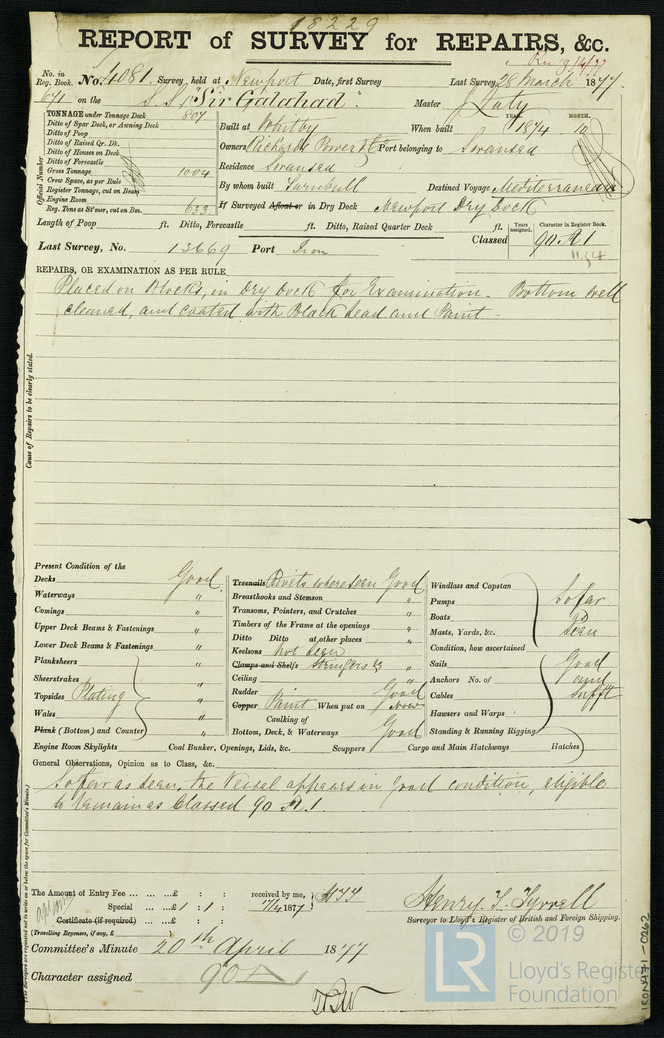 18229
REPORT of SURVEY for REPAIRS, &c.
No. in Reg. Book. No. 4081. Survey held at Newport Date, first Survey Last Survey 28 March 1877
671 on the S.S. "Sir Galahad". Master J. Luty
TONNAGE under Tonnage Deck 807
Ditto of Spar Deck, or Awning Deck
Ditto of Poop
Ditto of Raised Qr. Dk.
Ditto of Houses on Deck
Ditto of Forecastle
Gross Tonnage 1004
Crew Space, as per Rule
Register Tonnage, cut on Beam
Engine Room
Reg. Tons as St'mer, cut on Bm. 633
Official Number
Built at Whitby When built YEAR. 1874 MONTH. 10
Owners Richards Power & Co Port belonging to Swansea
Residence Swansea
By whom built Turnbull Destined Voyage Mediterranean
If Surveyed Afloat or in Dry Dock Newport Dry Dock
Length of Poop ft. Ditto, Forecastle ft. Ditto, Raised Quarter Deck ft.
Last Survey, No. 13669 Port Iron Classed Years assigned. Character in Register Book. 90 A 1
11,74
REPAIRS, OR EXAMINATION AS PER RULE
Placed on Blocks, in Dry Dock for Examination. Bottom well
cleaned, and coated with Black lead and Paint -
Cause of Repairs to be clearly stated.
Present Condition of the
Decks Good
Waterways "
Comings "
Upper Deck Beams & Fastenings "
Lower Deck Beams & Fastenings "
Planksheers
Sheerstrakes "
Topsides Plating "
Wales "
Plank (Bottom) and Counter "
Engine Room Skylights Coal Bunker, Openings, Lids, &c. Scuppers Cargo and Main Hatchways Hatches
Treenails Rivets where seen Good
Breasthooks and Stemson "
Transoms, Pointers, and Crutches "
Timbers of the Frame at the openings "
Ditto Ditto at other places "
Keelsons not seen
Clamps and Shelfs Stringers "
Ceiling "
Rudder Good
Copper Paint When put on Now
Caulking of
Bottom, Deck, & Waterways Good
Windlass and Capstan
Pumps So far
Boats as
Masts, Yards, &c. seen
Condition, how ascertained
Sails Good
Anchors No. of and
Cables sufft
Hawsers and Warps
Standing & Running Rigging
General Observations, Opinion as to Class, &c.
So far as seen, the Vessel appears in good condition, eligible
to remain as Classed 90 A 1.
The Amount of Entry Fee ... ... ...£ : : received by me,
Special ... ...£1 : 1 : 1877
Certificate (if required) ... ... : :
(Travelling Expenses, if any, £ )
Henry T. Tyrrell
Surveyor to Lloyd's Register of British and Foreign Shipping.
Committee's Minute 20th April 1877
Character assigned 90 A
IRON171-0262
LR © 2019
Lloyd's Register
Foundation